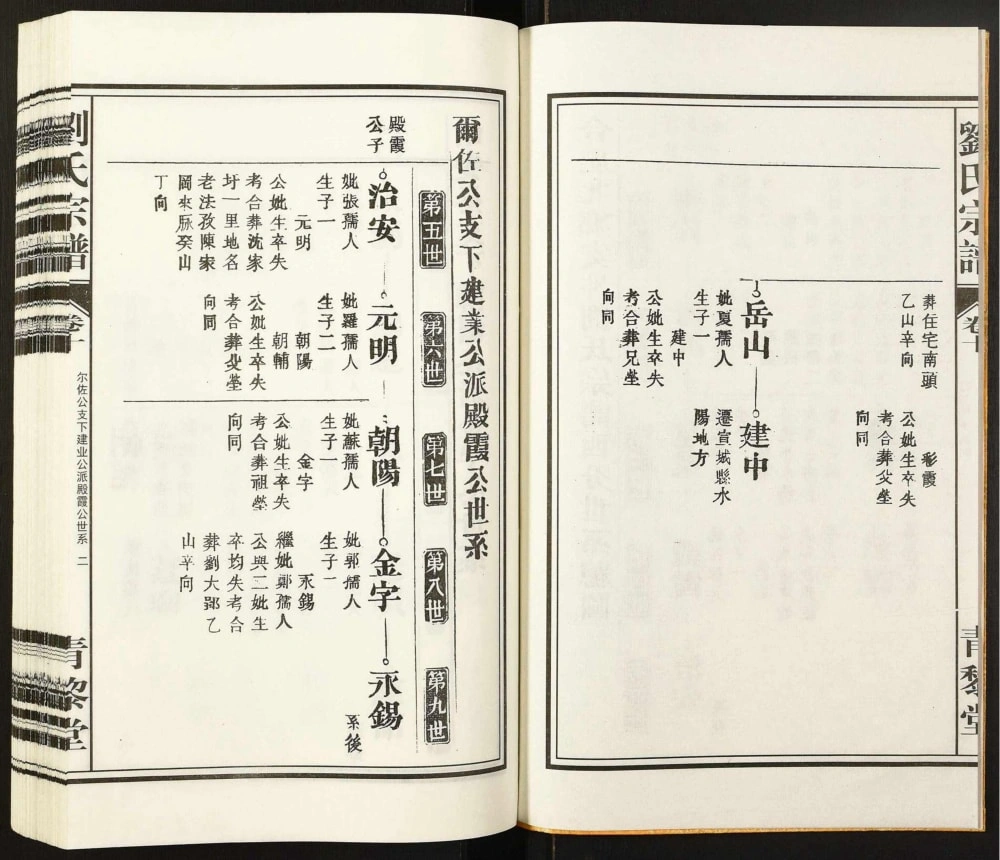 劉氏宗譜
卷十
青黎堂
葬住宅南頭
乙山辛向
彩霞
公妣生卒失
考合葬父塋
向同
岳山
妣夏孺人
生子一
建中
公妣生卒失
考合葬兄塋
向同
建中
遷宣城縣水
陽地方
爾佐公支下建業公派殿霞公世系
第五世
第六世
第七世
第八世
第九世
殿霞
公子
治安
妣張孺人
生子一
元明
公妣生卒失
考合葬沈家
圩一里地名
老法孜陳家
岡來脉癸山
丁向
元明
妣羅孺人
生子二
朝陽
朝輔
公妣生卒失
考合葬父塋
向同
朝陽
妣蘇孺人
生子一
金字
公妣生卒失
考合葬祖塋
向同
金字
妣郭孺人
生子一
永錫
繼妣鄭孺人
公與二妣生
卒均失考合
葬劉大郢乙
山辛向
永錫
系後
劉氏宗譜
卷十
尔佐公支下建业公派殿霞公世系 二
青黎堂